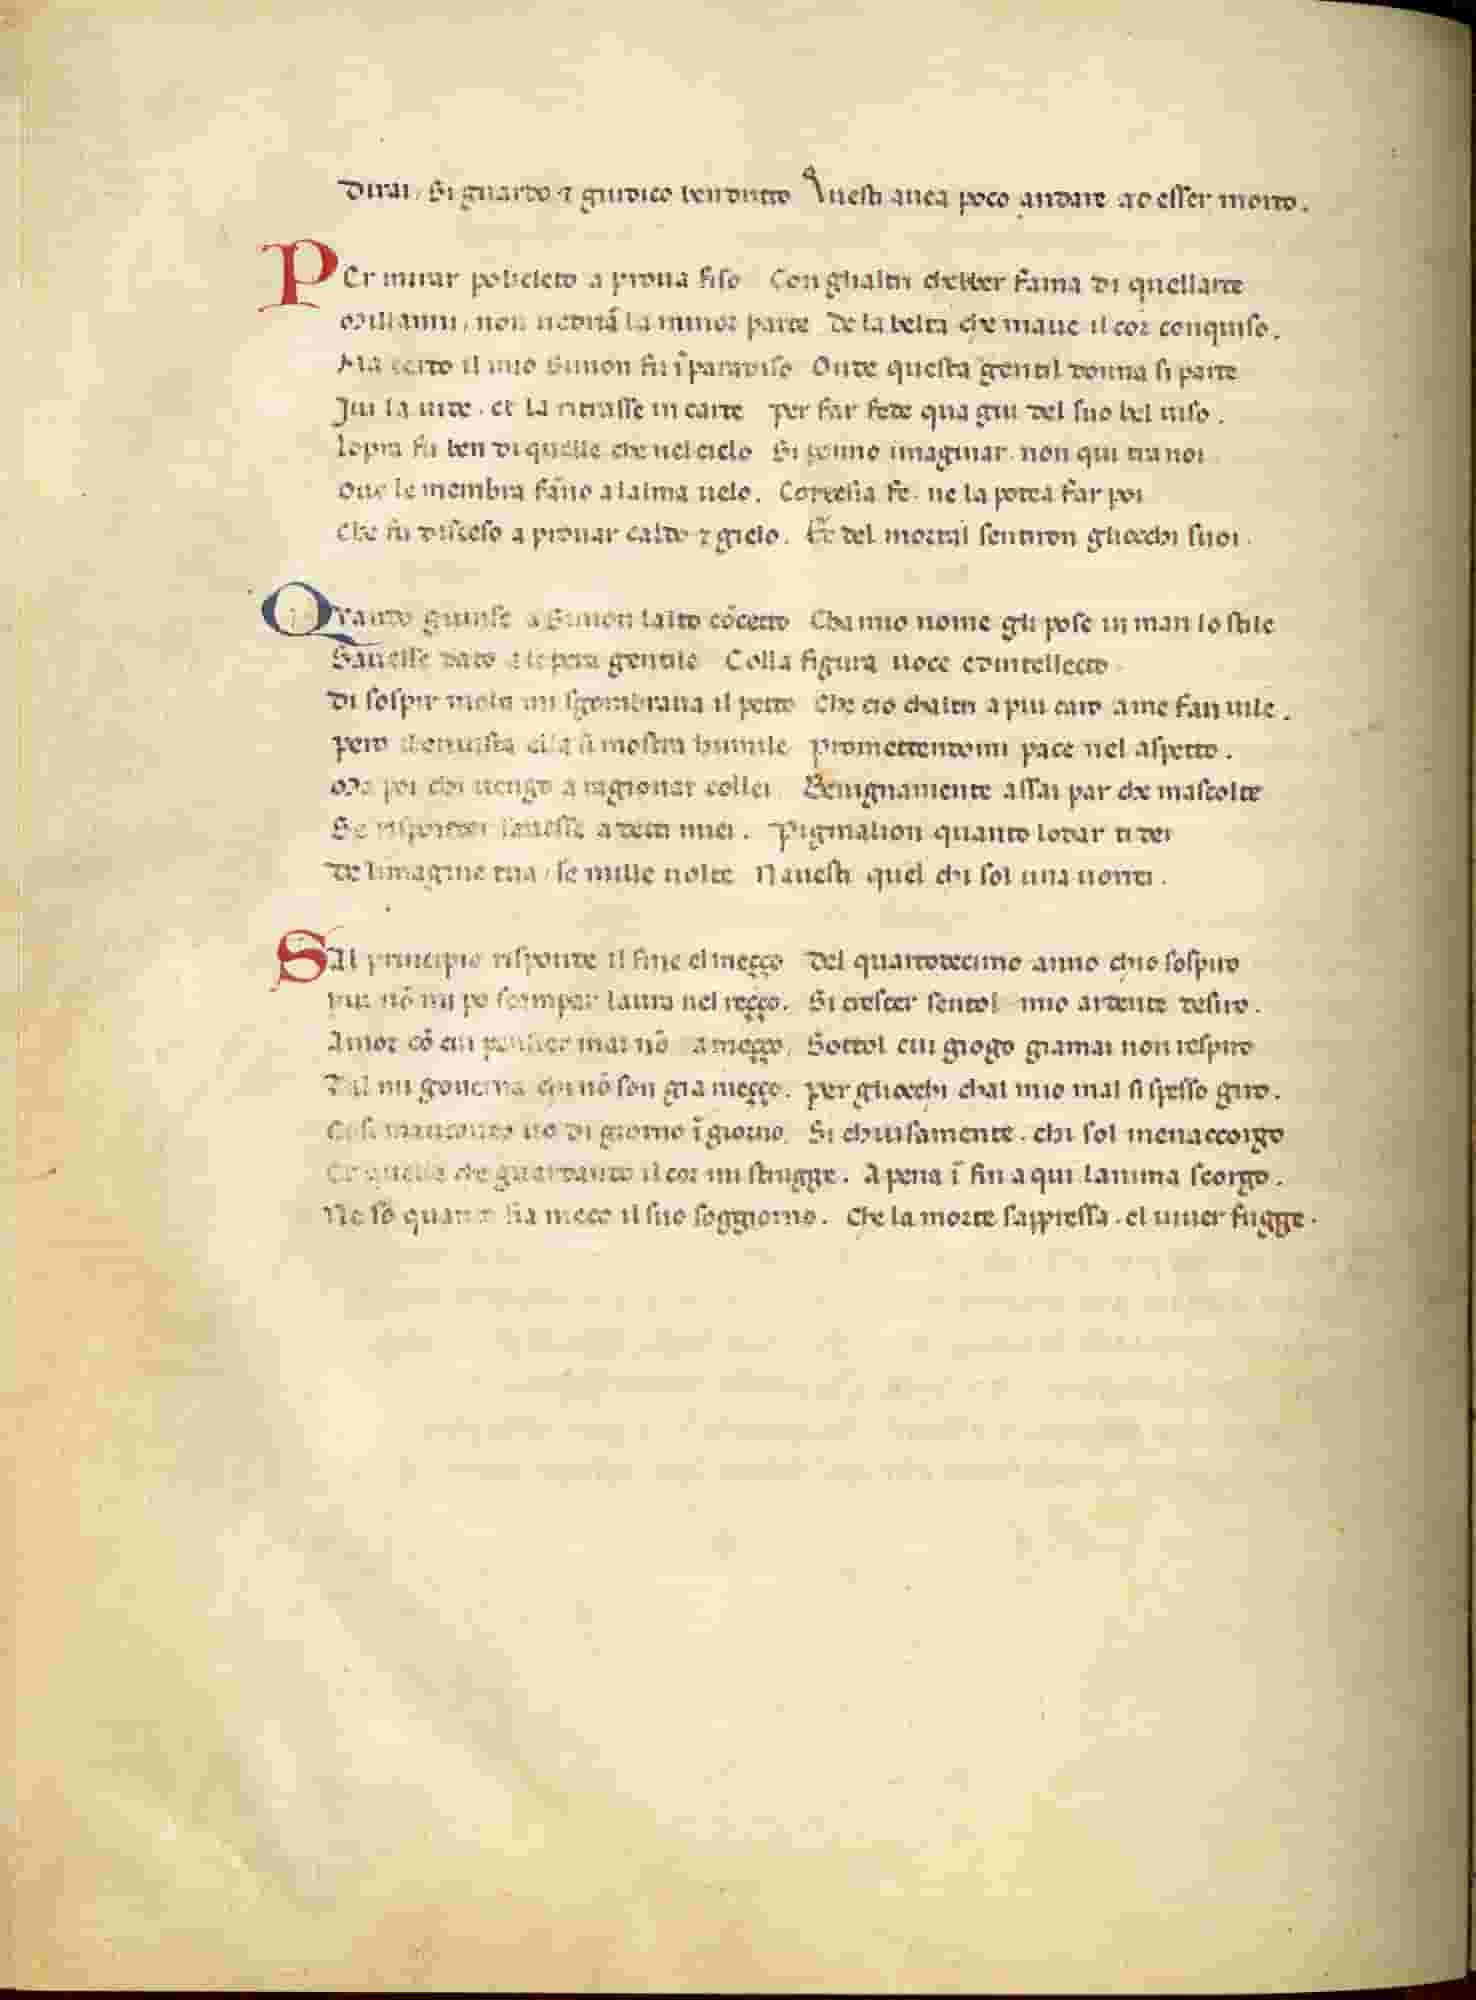 Dirai. Si guardo ⁊ giudico ben dritto Questi auea poco andare ad esser morto.
PEr mirar policleto a proua fiso Con glialtri chebber fama di quellarte
Millanni, non uedriā la minor parte De la belta che maue il cor conquiso.
Ma certo il mio Simon fu ī paradiso Onde questa gentil donna si parte
Iui la uide. et la ritrasse in carte Per far fede qua giu del suo bel uiso.
Lopra fu ben di quelle che nel cielo Si ponno imaginar. non qui tra noi.
Oue le membra fāno a lalma uelo. Cortesia fe. ne la potea far poi
Che fu disceso a prouar caldo ⁊ gielo. Et del mortal sentiron gliocchi suoi.
QVando giunse a Simon lalto cōcetto Cha mio nome gli pose in man lo stile
Sauesse dato a lopera gentile Colla figura uoce ed intellecto
Di sospir molti mi sgombraua il petto Che cio chaltri a piu caro a me fan uile.
Pero chenuista ella si mostra humile Promettendomi pace nel aspetto.
Ma poi chi uengo a ragionar collei Benignamente assai par che mascolte
Se risponder sauesse a detti miei. Pigmalion quanto lodar ti dei
De limagine tua, se mille uolte Nauesti quel chi sol una uorrei.
SAl principio risponde il fine el meççо Del quartodecimo anno chio sospiro
Piu nō mi po scampar laura nel reççо. Si crescer sentol mio ardente desiro.
Amor cō cui pensier mai nō a meççо. Sottol cui giogo giamai non respiro
Tal mi gouerna chi nō son gia meççо. Per gliocchi chal mio mal si spesso giro.
Cosi mancando uo di giorno ī giorno. Si chiusamente. chi sol menaccorgo
Et quella che guardando il cor mi strugge. A pena ī fin a qui lanima scorgo.
Ne sō quanto fia meco il suo soggiorno. Che la morte sappressa. el uiuer fugge.